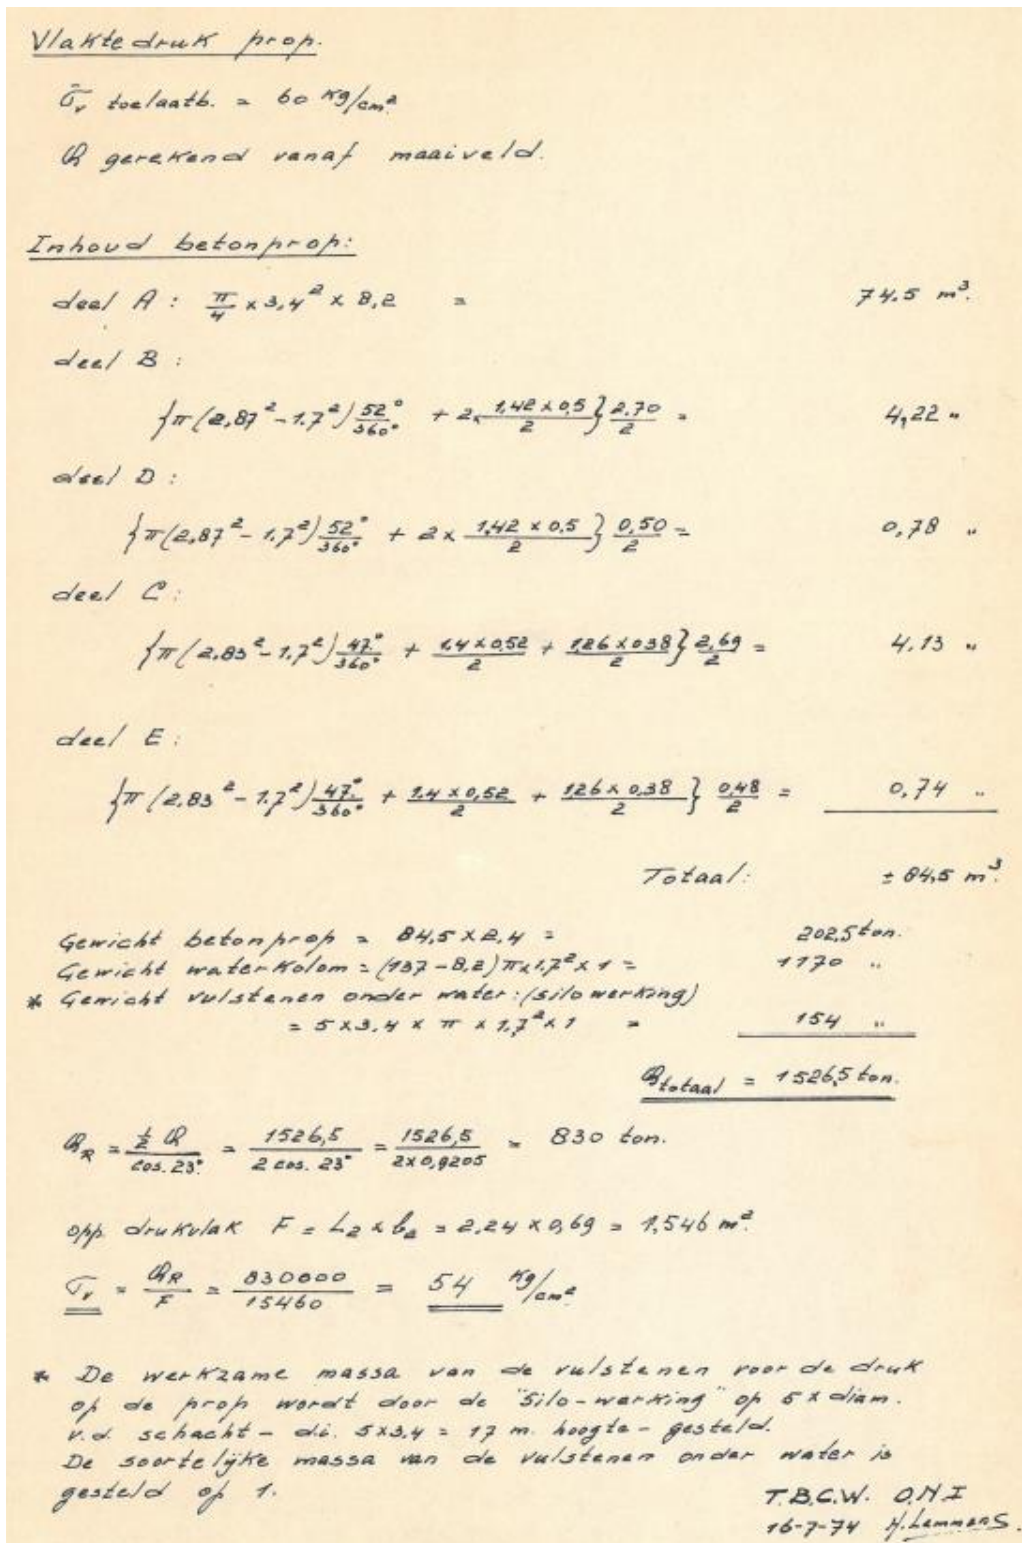 Vlaktedruk prop.
σ̄ᵥ toelaatb. = 60 kg/cm²
Q gerekend vanaf maaiveld.
Inhoud betonprop:
deel A: π/4 x 3,4² x 8,2 = 74,5 m³.
deel B:
{π(2,87² - 1.7²) 52°/360° + 2x 1,42 x 0,5/2} 2,70/2 = 4,22 "
deel D:
{π(2,87² - 1,7²) 52°/360° + 2x 1,42 x 0,5/2} 0,50/2 = 0,78 "
deel C:
{π(2,83² - 1,7²) 47°/360° + 1.4 x 0,52/2 + 1,26 x 0,38/2} 2,69/2 = 4.13 "
deel E:
{π(2,83² - 1.7²) 47°/360° + 1.4 x 0,52/2 + 1,26 x 0,38/2} 0,48/2 = 0,74 "
Totaal: ± 84,5 m³.
Gewicht betonprop = 84,5 x 2,4 = 202,5 ton.
Gewicht waterkolom = (137 - 8,2) π x 1,7² x 1 = 1170 "
* Gewicht vulstenen onder water: (silowerking)
= 5 x 3,4 x π x 1,7² x 1 = 154 "
Qtotaal = 1526,5 ton.
Q_R = ½ Q/cos. 23° = 1526,5/2 cos. 23° = 1526,5/2 x 0,9205 = 830 ton.
opp. drukvlak F = L₂ x b₂ = 2,24 x 0,69 = 1,546 m².
σᵥ = Q_R/F = 830000/15460 = 54 kg/cm²
* De werkzame massa van de vulstenen voor de druk
op de prop wordt door de "silo-werking" op 5 x diam.
v.d. schacht - d.i. 5x3,4 = 17 m. hoogte - gesteld.
De soortelijke massa van de vulstenen onder water is
gesteld op 1.
T.B.C.W. O.N.I
16-7-74 H.Lemmens.